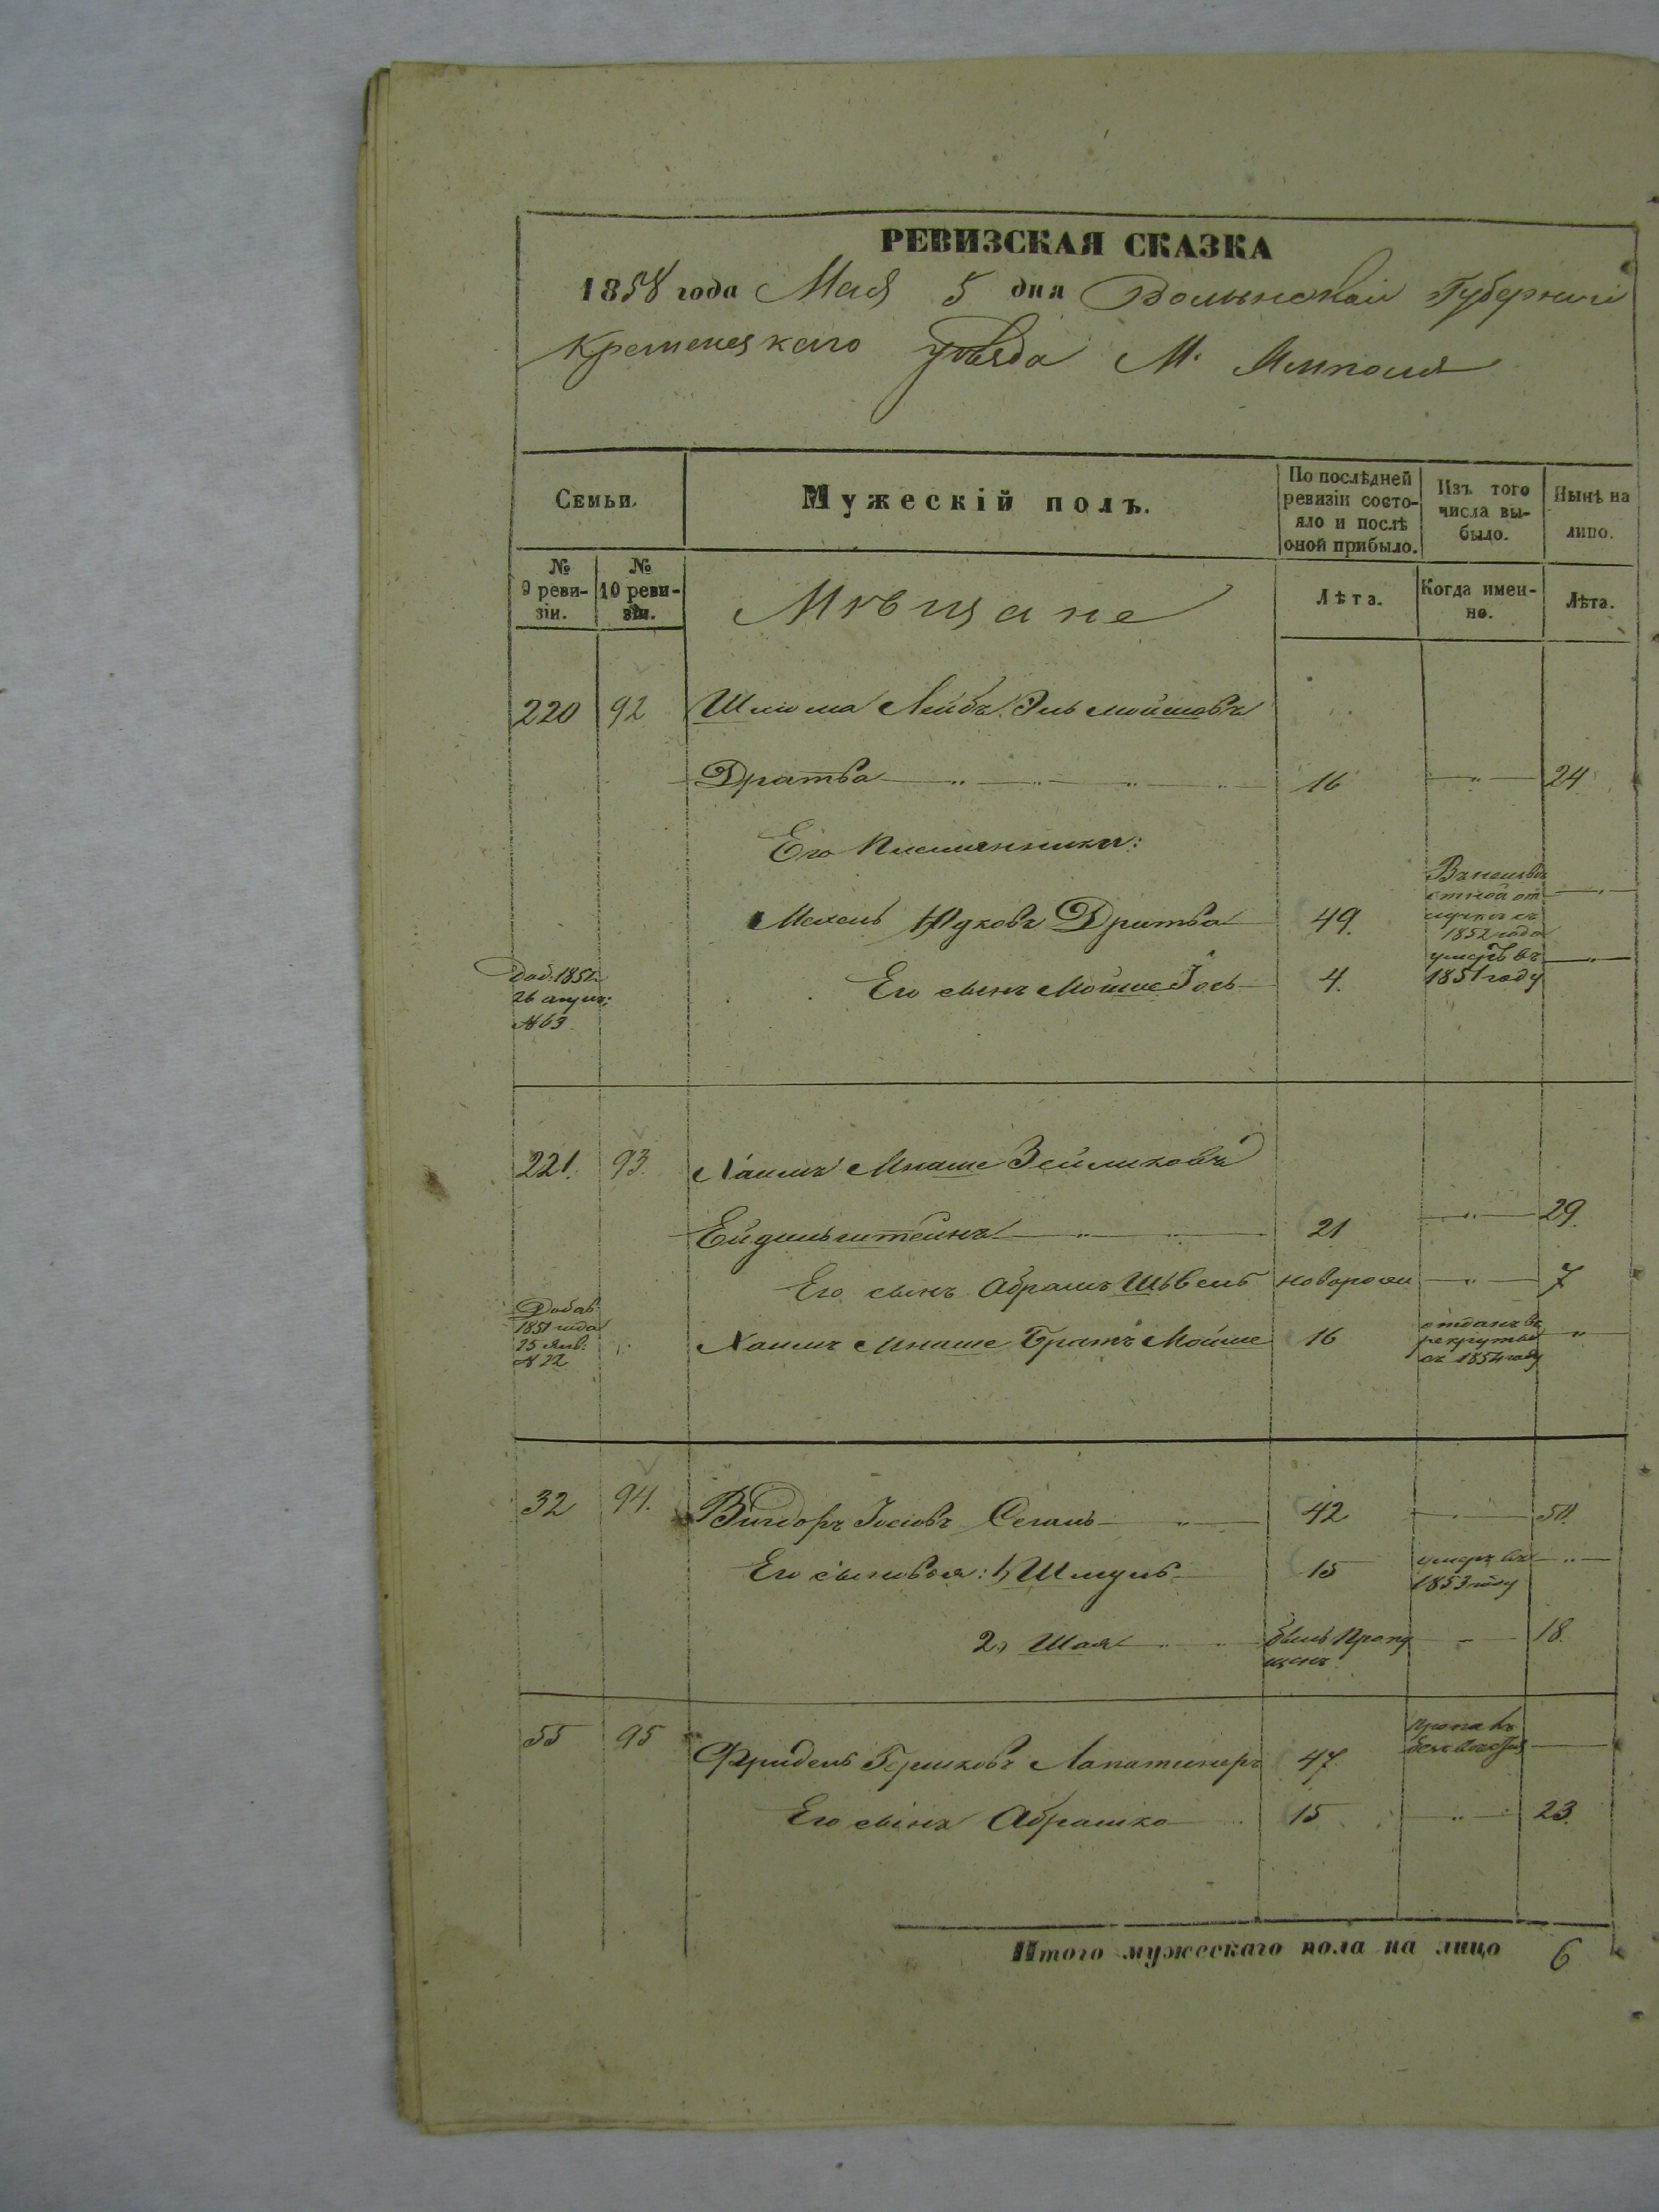 РЕВИЗСКАЯ СКАЗКА
1858 года Мая 5 дня Волынской Губернiи
Кременецкаго уѣзда М. Ямполя
Семьи.
Мужескiй полъ.
По послѣдней ревизiи состо-
яло и послѣ
оной прибыло.
Изъ того
числа вы-
было.
Нынѣ на
лицо.
№
9 реви-
зiи.
№
10 реви-
зiи.
Мѣщане
Лѣта.
Когда имен-
но.
Лѣта.
220 92 Шлиома Лейбъ Эль Мойшовъ
Дратва 16 24
Его племянники:
Мехель Юдковъ Дратва 49.
Въ неизвѣ
стной от
лучкѣ съ
1852 года
Доб. 1852
26 апрѣл:
№ 63
Его сынъ Мойше Iось 4.
умеръ въ
1851 году
221. 93. Хаимъ Мнаше Зейликовъ
Ейдельштейнъ 21 29.
Его сынъ Абрамъ Шѣвель новорожи 7
Добав:
1851 года
25 Янв:
№ 22
Хаимъ Мнаше Братъ Мойше 16
отданъ въ
рекруты
въ 1854 году
32 94. Вигдоръ Iосiовъ Сегаль 42 50.
Его сыновья: 1, Шмуль 15
умеръ въ
1853 году
2, Шая былъ пропу
щенъ 18.
55 95 Фридель Гершковъ Лапатинеръ 47.
пропалъ
безъ вѣстiя
Его сынъ Абрамко 15 23.
Итого мужескаго пола на лицо 6